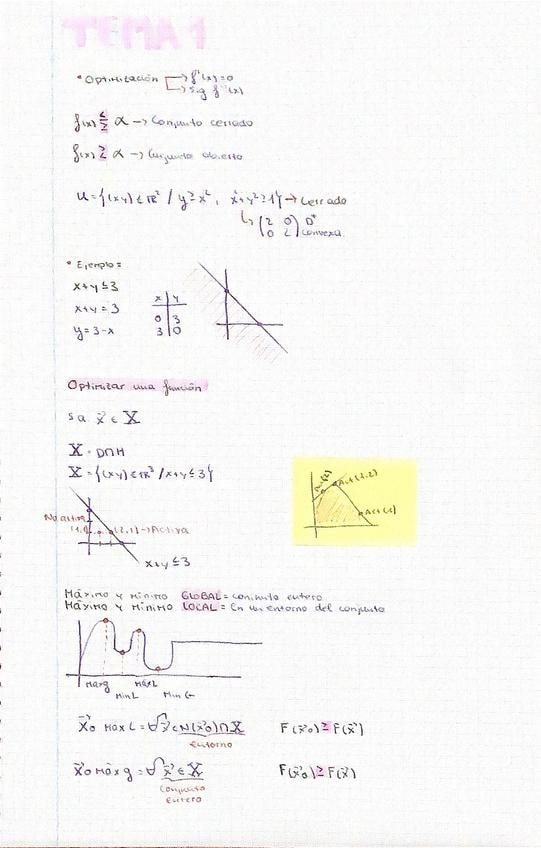 TEMA 1
* Optimización → f'(x)=0
→ sig f''(x)
f(x) ≤≥ α → Conjunto cerrado
f(x) ≷ α → Conjunto abierto
U = {(x,y) ∈ R² / y ≥ x², x²+y² ≥ 1} → Cerrado
↳ (2 0) D⁺
(0 2) Convexa
* Ejemplo:
x+y ≤ 3
x+y = 3
y = 3-x
x | y
0 | 3
3 | 0
Optimizar una función
s a x⃗ ∈ X
X = D∩H
X = {(x,y) ∈ R³ / x+y ≤ 3}
Act(2)
Act(1,2)
Act(1)
No activa
(1,1)
(2,1) → Activa
x+y ≤ 3
Máximo y Mínimo GLOBAL = conjunto entero
Máximo y Mínimo LOCAL = En un entorno del conjunto
Máx g
Máx L
Min L
Min G
x⃗₀ Máx L = ∀ x⃗ ∈ N(x⃗₀) ∩ X F(x⃗₀) ≥ F(x⃗)
entorno
x⃗₀ Máx g = ∀ x⃗ ∈ X F(x⃗₀) ≥ F(x⃗)
Conjunto
entero